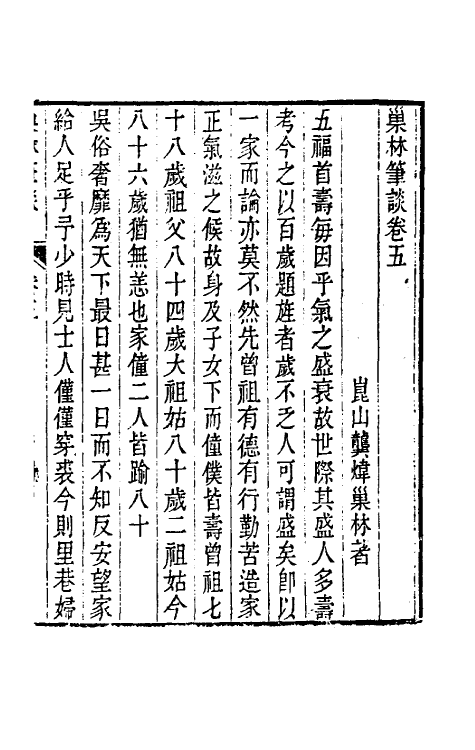 巢林筆談卷五
崑山龔煒巢林著
五福首壽每因乎氣之盛衰故世際其盛人多壽
考今之以百歲題旌者歲不乏人可謂盛矣卽以
一家而論亦莫不然先曾祖有德有行勤苦造家
正氣滋之候故身及子女下而僮僕皆壽曾祖七
十八歲祖父八十四歲大祖姑八十歲二祖姑今
八十六歲猶無恙也家僮二人皆踰八十
吳俗奢靡爲天下最日甚一日而不知反安望家
給人足乎予少時見士人僅僅穿裘今則里巷婦